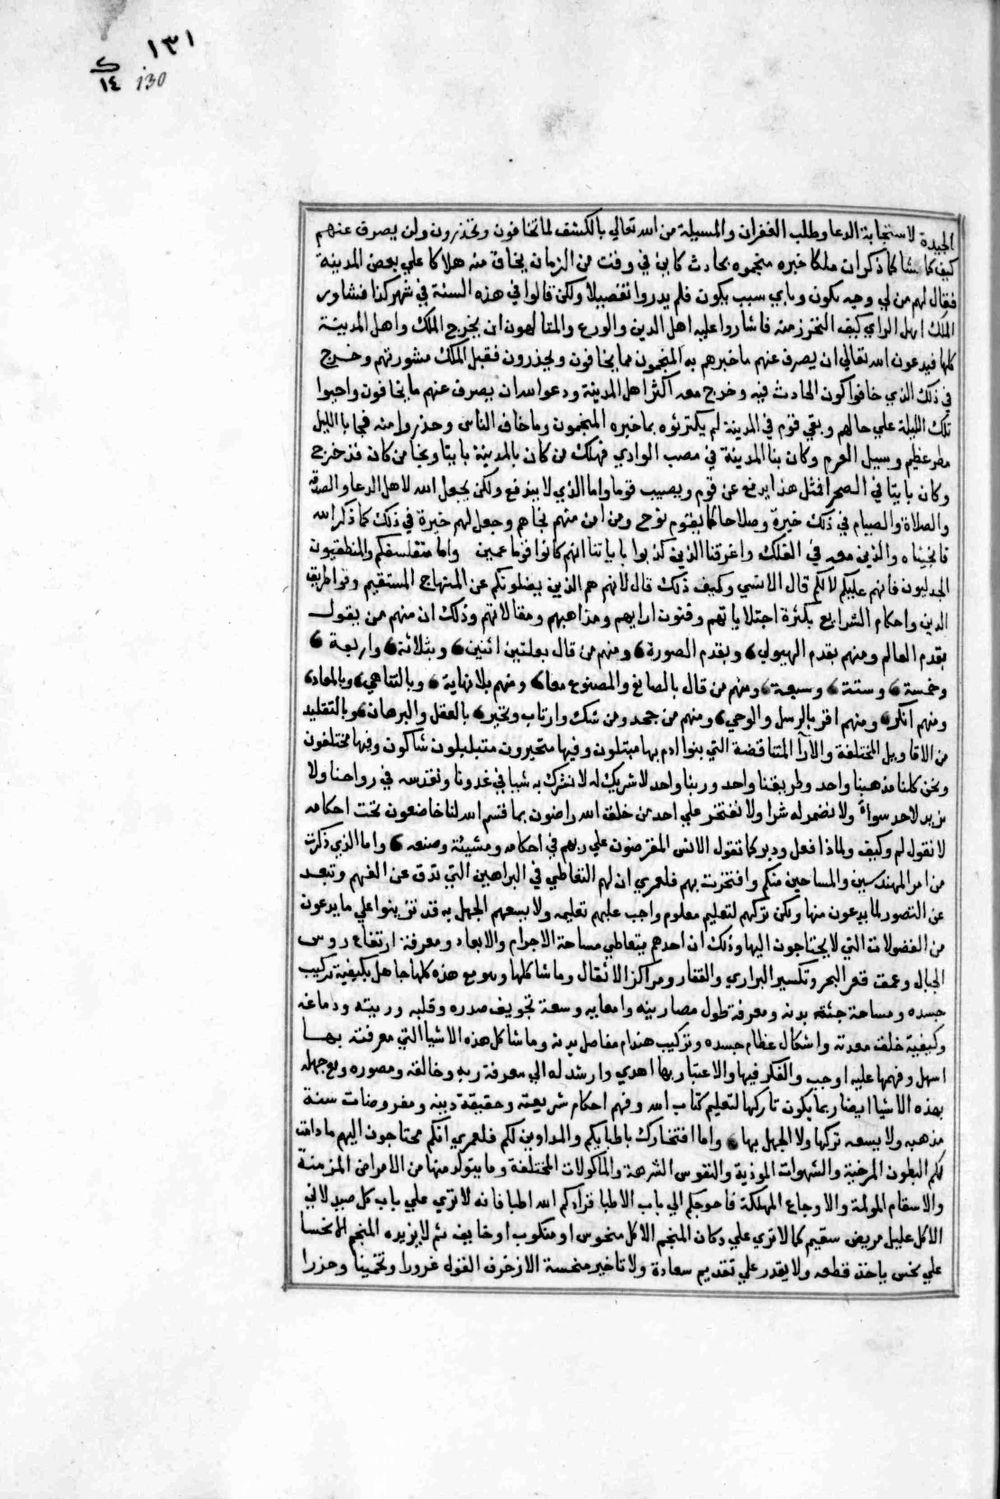 ١٣١
١٤ 130
الجيدة لاستجابة الدعا وطلب الغفران والمسيلة من الله تعالي بالكشف لما تخافون وتحذرون ولن يصرف عنهم
كيف كما شا كما ذكر ان ملكا خبره منجموه بحادث كاين في وقت من الزمان يخاف منه هلاكا علي بعض المدينة
فقال لهم من اي وجه يكون وباي سبب يكون فلم يدروا تفصيلا ولكن قالوا في هذه السنة في شهر كذا فشاور
الملك اهل الراي كيف التحرز منه فاشاروا عليه اهل الدين والورع والمتالهون ان يخرج الملك واهل المدينة
كلها فيدعون الله تعالي ان يصرف عنهم ما خبرهم به المنجمون مما يخافون ويحذرون فقبل الملك مشورتهم وخرج
في ذلك الذي خافوا كون الحادث فيه وخرج معه اكثر اهل المدينة ودعوا لله ان يصرف عنهم ما يخافون واحبوا
تلك الليلة علي حالهم وبقي قوم في المدينة لم يكترثوه بما خبره المنجمون وما خاف الناس وحذروا منه فجا بالليل
مطر عظيم وسيل العرم وكان بنا المدينة في مصب الوادي فهلك من كان بالمدينة بايتا ونجا من كان قد خرج
وكان بايتا في الصحرا فمثل هذا يرفع عن قوم ويصيب قوما واما الذي لا يندفع ولكن يجعل الله لاهل الدعا والصدقة
والصلاة والصيام في ذلك خيرة وصلاحا كما بقوم نوح ومن امن منهم نجاهم وجعل لهم خيرة في ذلك كما ذكر الله
فانجيناه والذين معه في الفلك واغرقنا الذين كذبوا باياتنا انهم كانوا قوما عمين واما متفلسفكم والمنطقيون
الجدليون فانهم عليكم لا لكم قال الانسي وكيف ذلك قال لانهم هم الذين يضلونكم عن المنهاج المستقيم وطريق
الدين واحكام الشرايع بكثرة اختلافاتهم وفنون ارايهم ومذاهبهم ومقالاتهم وذلك ان منهم من يقول
بقدم العالم ومنهم بقدم الهيولي وبقدم الصورة ومنهم من قال بعلتين اثنين وبثلاثة واربعة
وخمسة وستة وسبعة ومنهم من قال بالصانع والمصنوع معا ومنهم بلا نهاية وبالتناهي وبالمعاد
ومنهم انكر ومنهم اقر بالرسل والوحي ومنهم من جحد ومن شك وارتاب وتحير بالعقل والبرهان وبالتقليد
من الاقاويل المختلفة والارآ المتناقضة التي بنوا ادم بها مبتلون وفيها متحيرون متبلبلون شاكون وفيها مختلفون
ونحن كلنا مذهبنا واحد وطريقنا واحد وربنا واحد لا شريك له لا نشرك به شيا في غدونا ونقدسه في رواحنا ولا
نريد لاحد سواء ولا نضمر له شرا ولا نفتخر علي احد من خلق الله راضون بما قسم الله لنا خاضعون تحت احكامه
لا نقول لم وكيف ولماذا فعل ودبر كما تقول الانس المعترضون علي ربهم في احكامه ومشيئة وصنعه واما الذي ذكرت
من امر المهندسين والمساحين منكم وافتخرت بهم فلعمري ان لهم التعاطي في البراهين التي تدق عن الفهم وتبعد
عن التصور لما يدعون منها ولكن تركهم لتعليم معلوم واجب عليهم تعليمه ولا يسعهم الجهل به قد تزينوا علي ما يدعون
من الفضولات التي لا يحتاجون اليها وذلك ان احدهم يتعاطي مساحة الاجرام والابعاد ومعرفة ارتفاع روس
الجبال وعمق قعر البحر وتكسير البراري والقفار ومراكز الاثقال وما شاكلها وهو مع هذه كلها جاهل بكيفية تركيب
جسده ومساحة جثته بدنه ومعرفة طول مصارينه وامعايه وسعة تجويف صدره وقلبه وريته ودماغه
وكيفية خلقة معدته واشكال عظام جسده وتركيب هندام مفاصل بدنه وما شاكل هذه الاشيا التي معرفته بها
اسهل وفهمها عليه اوجب والفكر فيها والاعتبار بها اهدي وارشد له الي معرفة ربه وخالقه ومصوره ومع جهله
بهذه الاشيا ايضا ربما يكون تاركها لتعليم كتاب الله وفهم احكام شريعته وحقيقة دينه ومفروضات سنة
مذهبه ولا يسعه تركها ولا الجهل بها واما افتخارك باطبايكم والمداوين لكم فلعمري انكم محتاجون اليهم ما دامت
لكم البطون المرخية والشهوات الموذية والنفوس الشرهة والماكولات المختلفة وما يتولد منها من الامراض المزمنة
والاسقام المولمة والاوجاع المهلكة فاحوجكم الي باب الاطبا فزادكم الله اطبا فانه لا تري علي باب كل صيدلاني
الا كل عليل مريض سقيم كما لا تري علي دكان المنجم الا كل منحوس او منكوب او خايف ثم لا يزيده المنجم الا نحسا
علي نحس ياخذ قطعه ولا يقدر علي تقديم سعادة ولا تاخير منحسة الا زخرف القول غرورا وتخمينا وحزرا